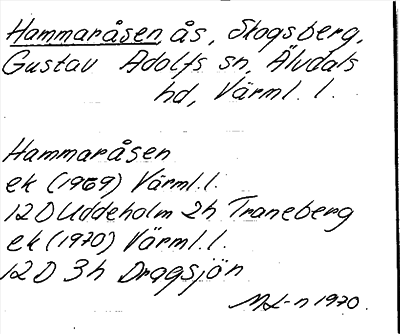 Hammaråsen, ås, Skogsberg,
Gustav Adolfs sn, Älvdals
hd, Värml. l.
Hammaråsen
ek (1969) Värml. l.
12D Uddeholm 2h Traneberg
ek (1970) Värml. l.
12D 3h Dragsjön
1970.